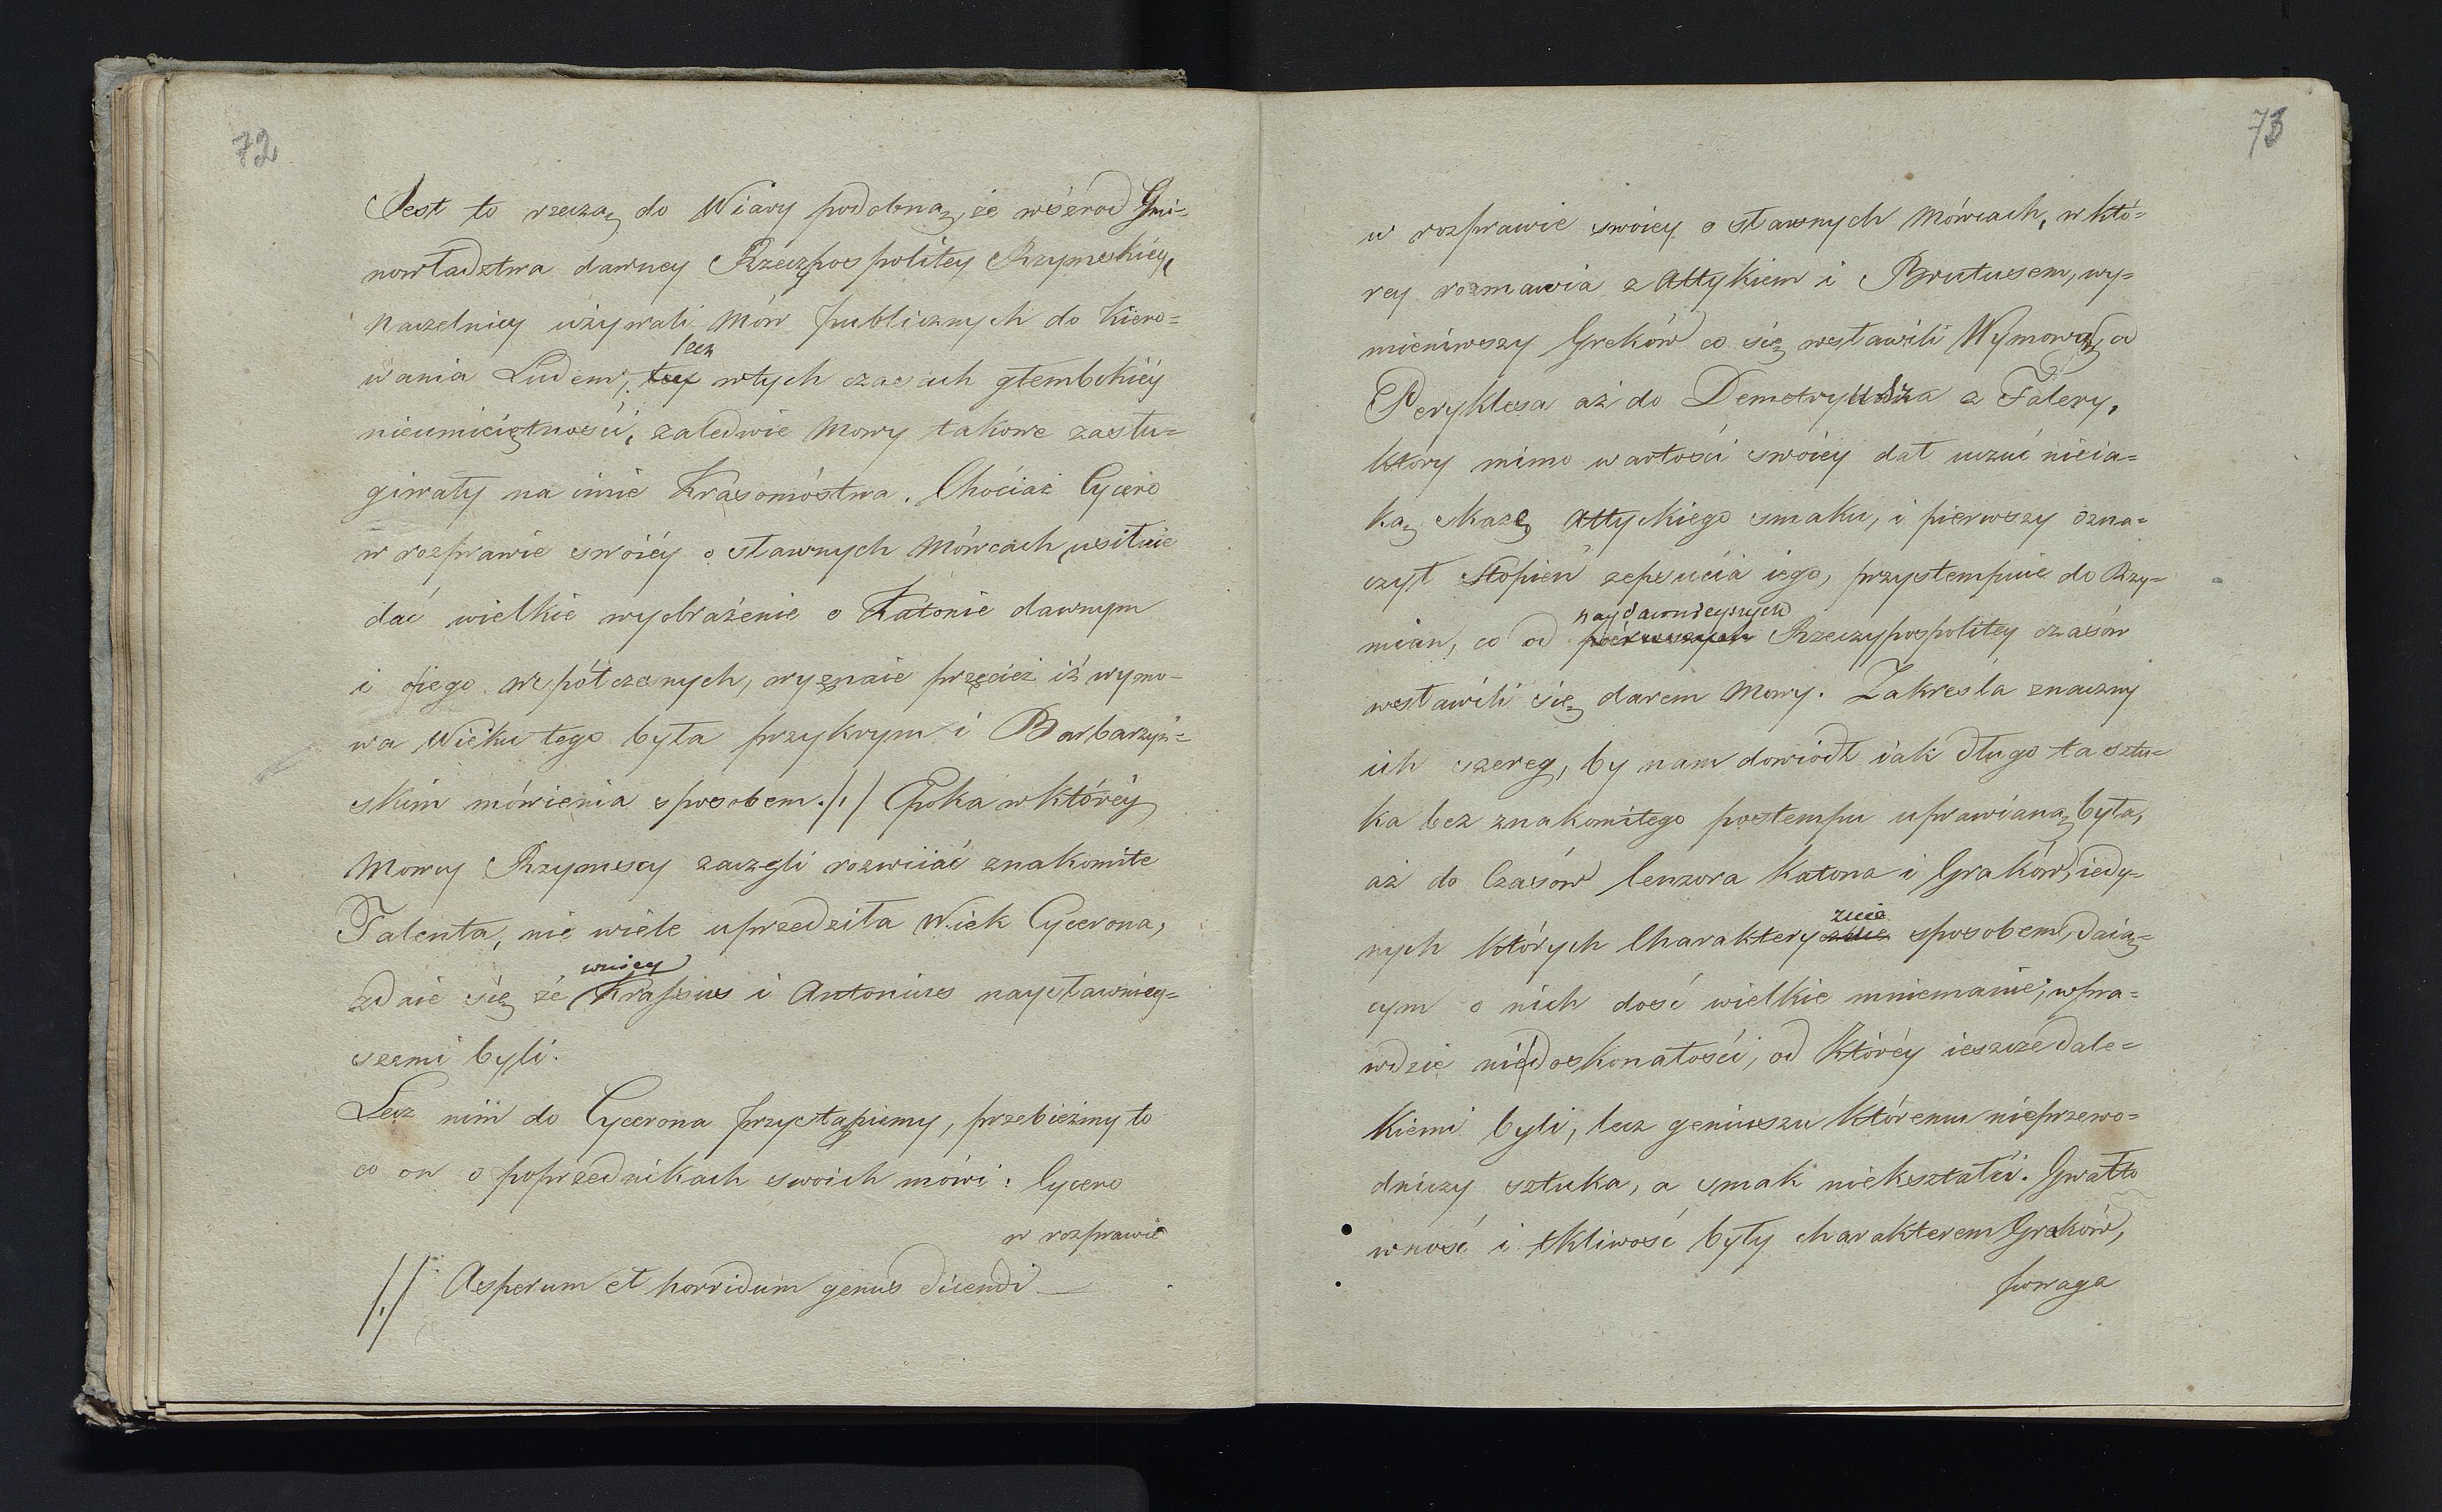 72
Jest to rzeczą do Wiary podobną, że wśzrod Gmi-
nowładztwa dawney Rzeczypospolitey Rzymskiey,
Naczelnicy używali Mów publicznych do kiero-
lecz
wania Ludem, w tych czasach głembokiéy
nieumieiętności, zaledwie Mowy takowe zasłu-
giwały na imie Krasomóstwa. Chociaż Cycero
w rozprawie swoiéy o sławnych Mówcach, usiłuie
dać wielkie wyobrażenie o Katonie dawnym
i o iego wspołczesnych, wyznaie przecież iż wymo-
wa Wieku tego była przykrym i Barbarzyń-
skim mówienia sposobem. /./ Epoka w któréy
Mowcy Rzymscy zaczęli rozwiiać znakomite
Talenta, nie wiele uprzedziła Wiek Cycerona,
wniey
zdaie się że Krassus i Antonius naysławniey-
szemi byli.
Lecz nim do Cycerona przystąpiemy, przebieżmy to
co on o poprzednikach swoich mówi: Cycero
w rozprawie
/./ Asperum et horridum genus dicendi —
73
w rozprawie swoiey o sławnych Mówcach, w któ-
rey rozmawia z Attykiem i Brutusem, wy-
mieniwszy Greków co się wsławili Wymową, od
Peryklesa aż do Demetryusza z Falery,
który mimo wartości swoiey dał uczuć nieia-
ką skazę Attyckiego smaku, i pierwszy ozna-
czył stopień zepsucia iego, przystempuie do Rzy-
naydawnieyszych
mian, co od pierwszych Rzeczypospolitey czasów
wsławili się darem Mowy. Zakreśla znaczny
ich szereg, by nam dowiodł iak długo ta sztu-
ka bez znakomitego postempu uprawianą była,
aż do Czasów Cenzora Katona i Graków, iedy-
znie
nych których Charakterycznie sposobem, daią-
cym o nich dosć wielkie mniemanie, wpra-
wdzie niedoskonałości, od któréy ieszcze dale-
kiemi byli, lecz geniuszu któremu nieprzewo-
dniczy sztuka, a smak niekształci. Gwałto
wność i tkliwość były charakterem Graków,
powaga